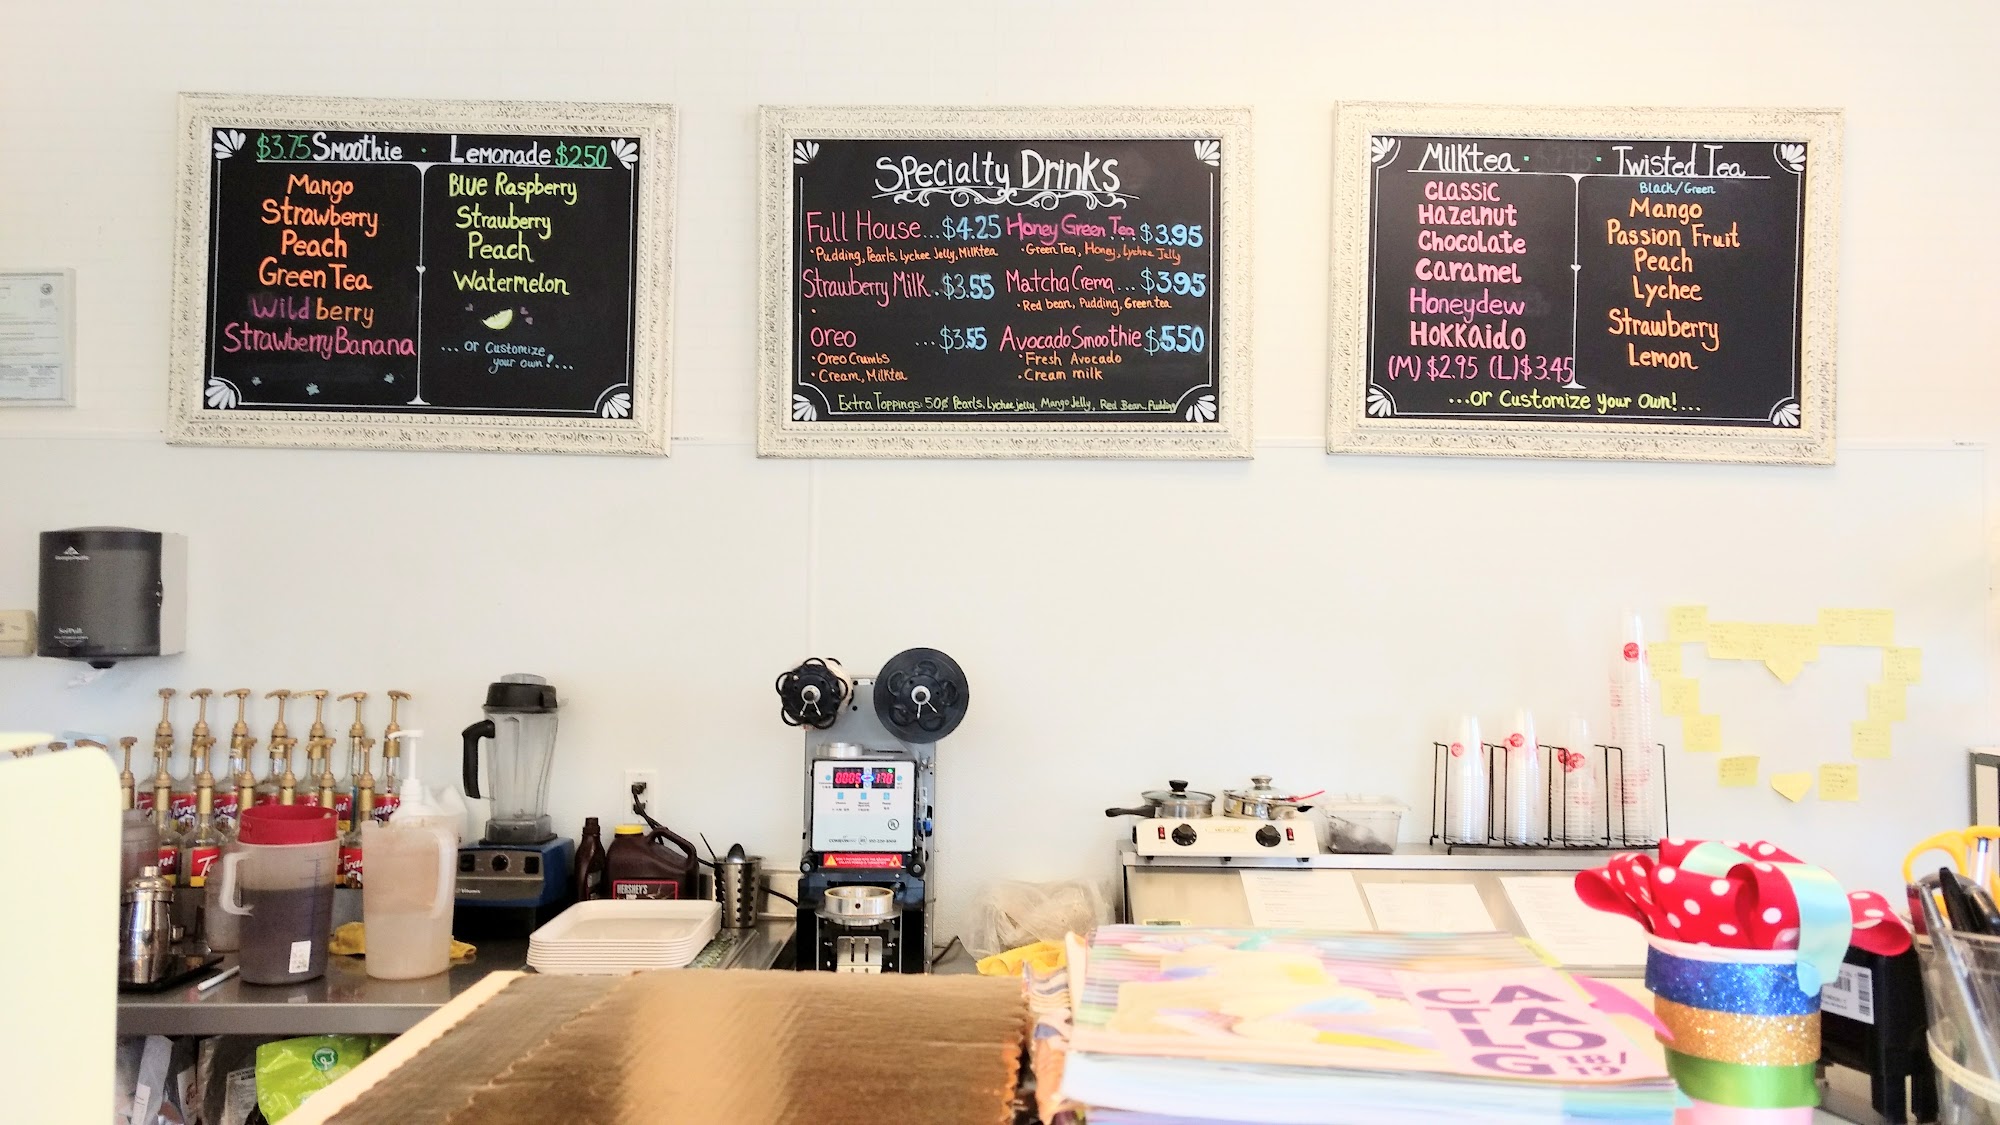 $3.75 Smoothie · Lemonade $2.50
Mango
Strawberry
Peach
Green Tea
Wildberry
Strawberry Banana
Blue Raspberry
Strawberry
Peach
Watermelon
...or Customize
your own!...
Specialty Drinks
Full House...$4.25
·Pudding, Pearls, Lychee Jelly, Milktea
Strawberry Milk..$3.55
Oreo ...$3.55
·Oreo Crumbs
·Cream, Milktea
Honey Green Tea...$3.95
·Green Tea, Honey, Lychee Jelly
Matcha Crema...$3.95
·Red bean, Pudding, Green tea
Avocado Smoothie $5.50
·Fresh Avocado
·Cream milk
Extra Toppings: 50¢ Pearls, Lychee jelly, Mango Jelly, Red Bean, Pudding
Milktea · · Twisted Tea
Classic
Hazelnut
Chocolate
Caramel
Honeydew
Hokkaido
(M) $2.95 (L) $3.45
Black/Green
Mango
Passion Fruit
Peach
Lychee
Strawberry
Lemon
...or Customize your Own!...
HERSHEY'S
0005 170
CATALOG
18/
19